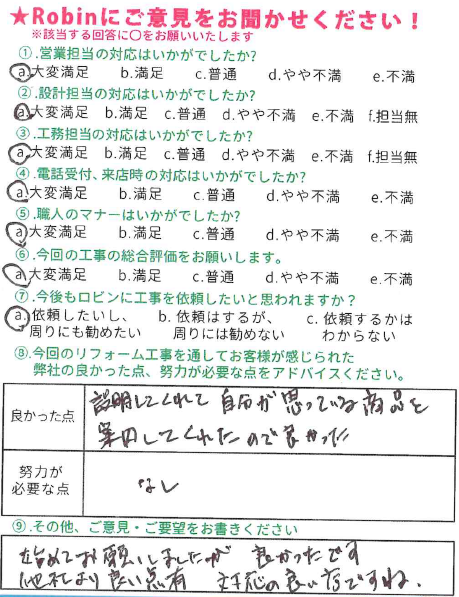 ★Robinにご意見をお聞かせください！
※該当する回答に〇をお願いいたします
①.営業担当の対応はいかがでしたか?
a.大変満足 b.満足 c.普通 d.やや不満 e.不満
②.設計担当の対応はいかがでしたか?
a.大変満足 b.満足 c.普通 d.やや不満 e.不満 f.担当無
③.工務担当の対応はいかがでしたか?
a.大変満足 b.満足 c.普通 d.やや不満 e.不満 f.担当無
④.電話受付、来店時の対応はいかがでしたか?
a.大変満足 b.満足 c.普通 d.やや不満 e.不満
⑤.職人のマナーはいかがでしたか?
a.大変満足 b.満足 c.普通 d.やや不満 e.不満
⑥.今回の工事の総合評価をお願いします。
a.大変満足 b.満足 c.普通 d.やや不満 e.不満
⑦.今後もロビンに工事を依頼したいと思われますか？
a.依頼したいし、 b. 依頼はするが、 c. 依頼するかは
周りにも勧めたい 周りには勧めない わからない
⑧.今回のリフォーム工事を通してお客様が感じられた
弊社の良かった点、努力が必要な点をアドバイスください。
良かった点
説明してくれて 自分が思っている商品を
案内してくれたので良かった
努力が
必要な点
なし
⑨.その他、ご意見・ご要望をお書きください
始めてお願いしましたが 良かったです
他社より良い点有 対応の良い店ですね.